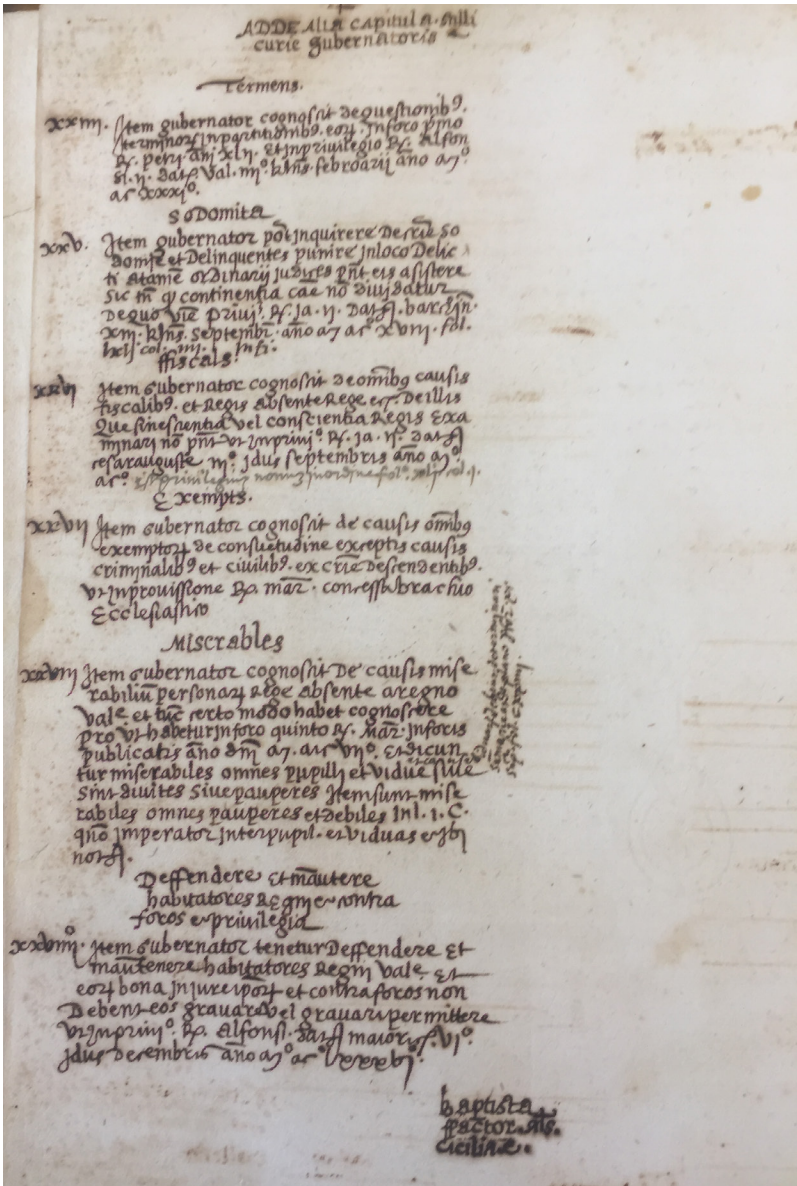 ADDE Alia capitula
curie gubernatoris
Termens.
xxiiii. Item gubernator cognoscit de questionibꝰ.
terminoꝝ in partitionibꝰ. eoꝝ. in foro pͥmo
R. petri. año xlii. Et in privilegio R. Alfon
si. ii. dat. Val. iiiiº. klñs. februarii año mº
ccº xxxiº.
Sodomita
xxv. Item gubernator põt inquirere de crĩe so
domie et Delinquentes punire in loco Delic
ti Atamẽ ordinarii judices pñt eis asistere
Sic tñ qͥ continentia cãe nõ dividatur
de quo viẽ privi. R. ja. ii. Dat. barchiñ.
xiii. klñs. septembr. año m cc xviii. fol.
xlii col. iiii.
ffiscals.
xxvi Item Gubernator cognoscit de om̃ibꝰ causis
fiscalibꝰ. et Regis absente Rege Deillis
Que sine scientia vel conscientia Regis exa
minari nõ pñt ut in privi.º R. ja. ii. Dat
cesarauguste iiiº. jdus septembris año mº.
ccº. privilegium nonum in ordine folº. xlii col. i.
Exempts.
xxvii Item Gubernator cognoscit de causis om̃ibꝰ
exemptoꝝ de consuetudine exceptis causis
criminalibꝰ et civilibꝰ. ex crĩe descendentibꝰ.
ut in provissione R. mar̃. concessa brachio
Ecclesiastico
Miserables
xxviii Item Gubernator cognoscit De causis mise
rabiliũ personaꝝ Rege absente a regno
vale et tũc certo modo habet cognoscere
pro ut habetur in foro quinto R. Mar̃. in foris
publicatis año dñi m. ccc viiº. Et dicun
tur miserabiles omnes pupilli et vidue sive
Sint divites Sive pauperes Item sunt mise
rabiles omnes pauperes et debiles in l. i. C.
qño imperator inter pupil. et viduas et ibi
not.
Deffendere Et mãutere
habitatores Regni e contra
foros e privilegia
xxviiiiº. Item Gubernator tenetur Deffendere Et
mãutenere habitatores Regni Vale Et
eoꝝ bona in jure ipoꝝ et contra foros non
Debent eos gravare vel gravari permittere
ut in privi.º R. Alfonsi. dat maioric. viº.
jdus decembris año mº ccº lxxxviº.
baptista
ffactor als.
ciciliae.